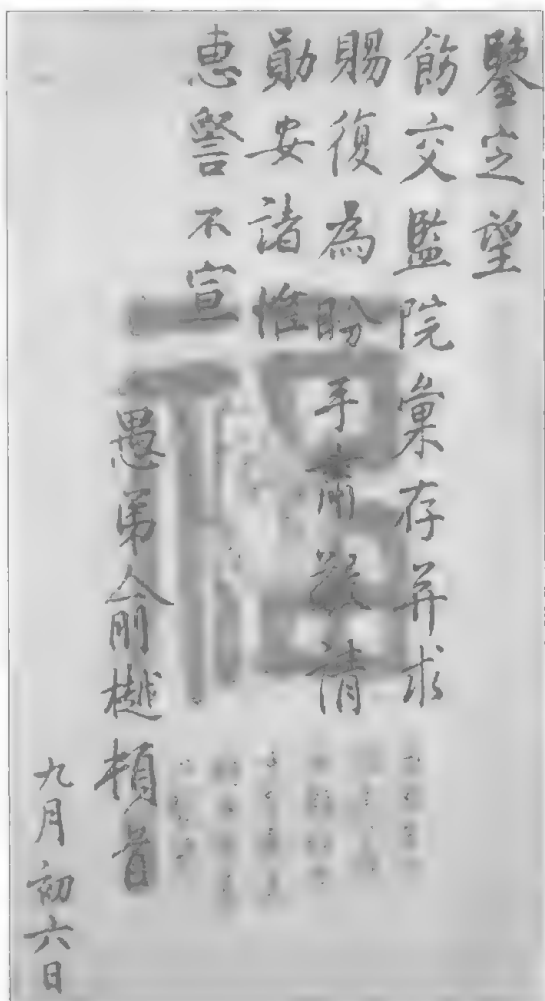 鑒定望
飭交監院彙存並求
賜復為盼手肅敬請
勛安諸惟
惠詧不宣
愚弟俞樾頓首
九月初六日